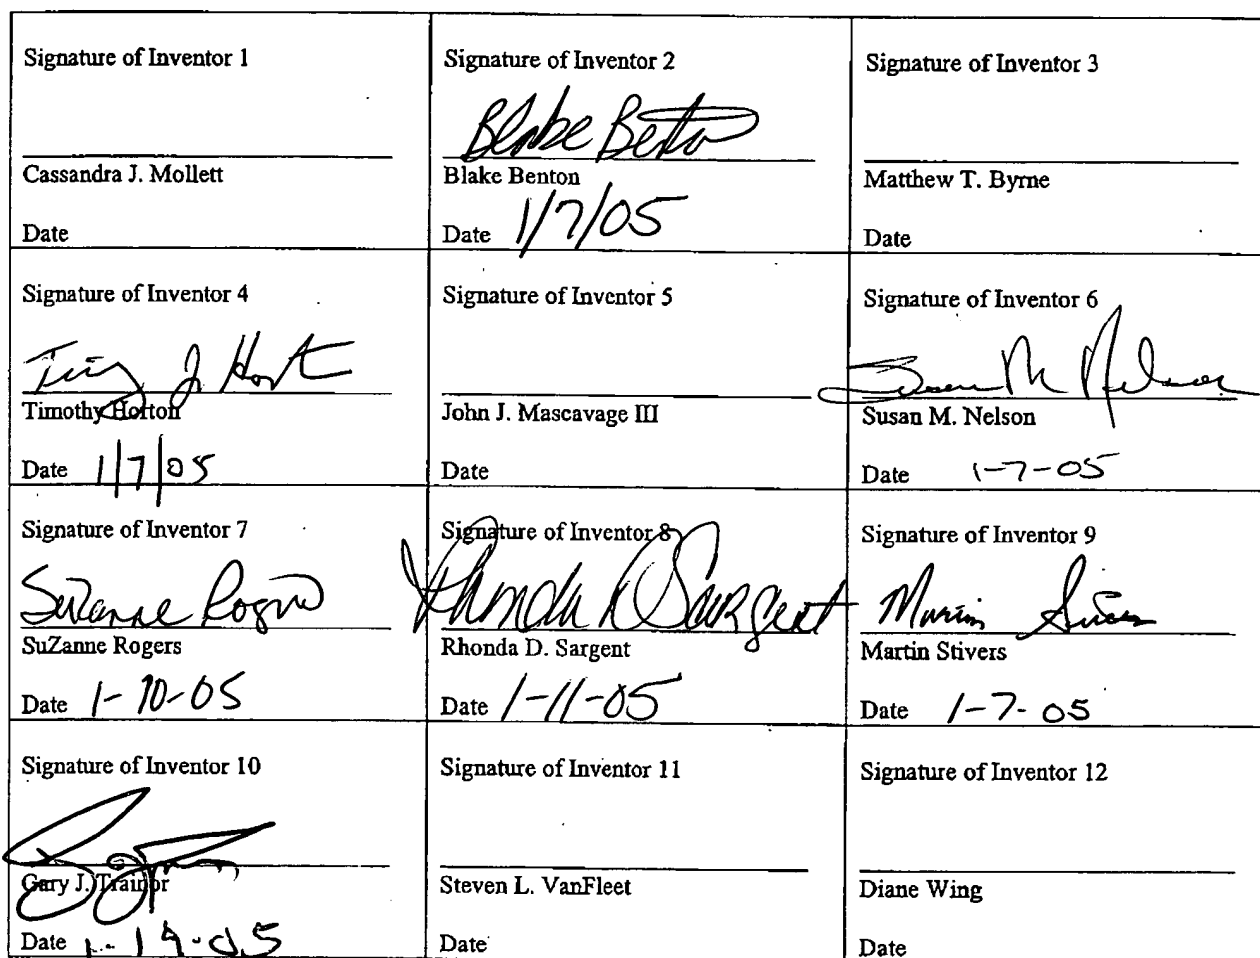 Signature of Inventor 1
Cassandra J. Mollett
Date
Signature of Inventor 2
Blake Benton
Blake Benton
Date 1/7/05
Signature of Inventor 3
Matthew T. Byrne
Date
Signature of Inventor 4
J Hort
Timothy Horton
Date 1/7/05
Signature of Inventor 5
John J. Mascavage III
Date
Signature of Inventor 6
Susan M Nelson
Susan M. Nelson
Date 1-7-05
Signature of Inventor 7
SuZanne Rogers
SuZanne Rogers
Date 1-10-05
Signature of Inventor 8
Rhonda D Sargent
Rhonda D. Sargent
Date 1-11-05
Signature of Inventor 9
Martin Stivers
Martin Stivers
Date 1-7-05
Signature of Inventor 10
Gary J. Trainor
Date 1-19-05
Signature of Inventor 11
Steven L. VanFleet
Date
Signature of Inventor 12
Diane Wing
Date